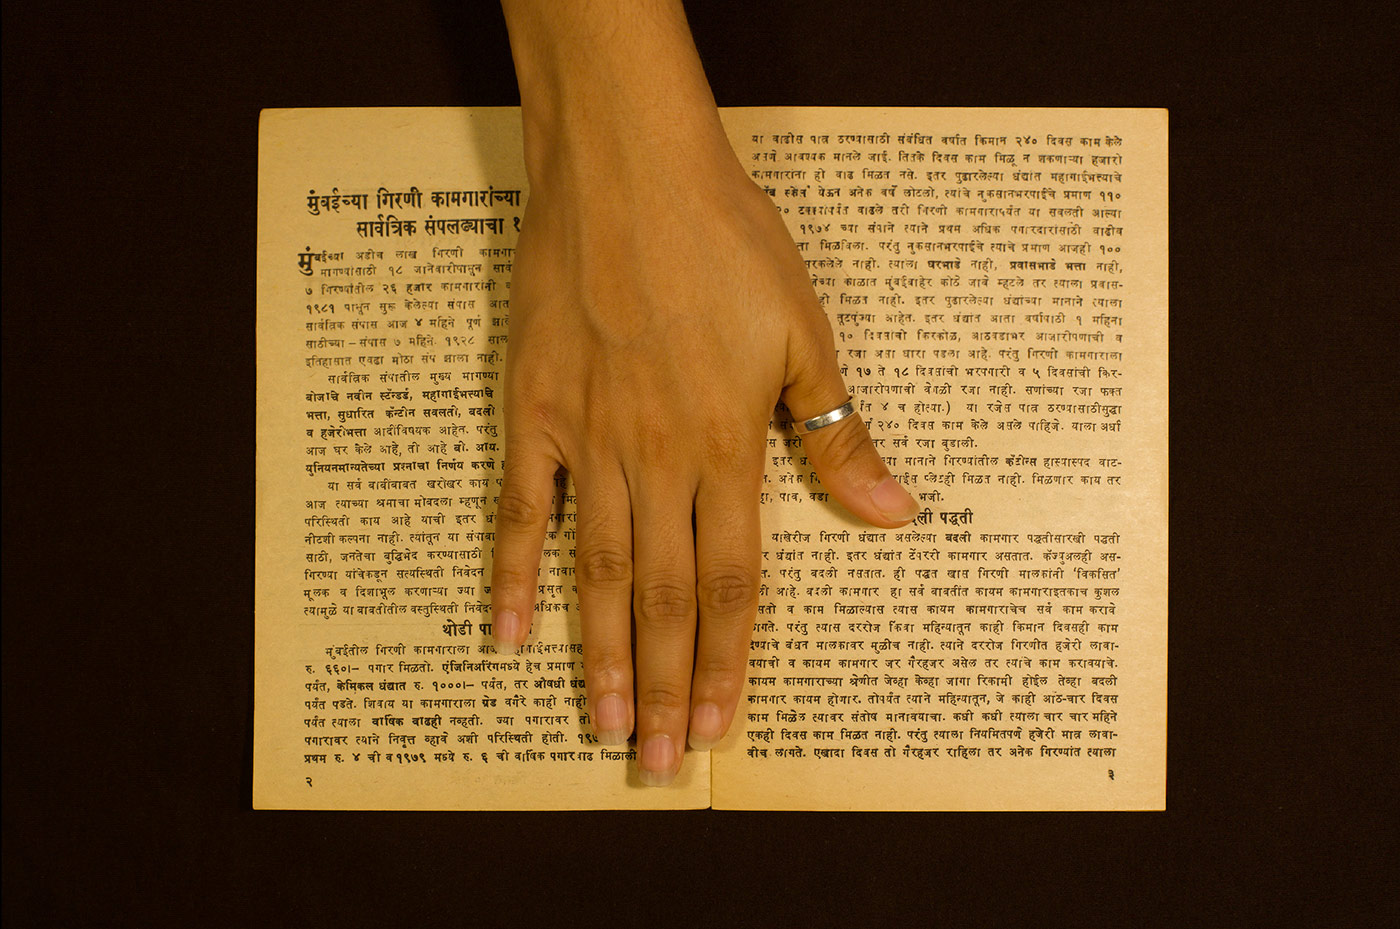 मुंबईच्या गिरणी कामगारांच्या
सार्वत्रिक संपलढ्याचा
मुंबईच्या अडीच लाख गिरणी
मागण्यांसाठी १८ जानेवारीपासून
७ गिरण्यांतील २६ हजार कामगारांनी
१९८१ पासून सुरू केलेल्या संपास
सार्वत्रिक संपास आज ४ महिने पूर्ण
साठीच्या – संपास ७ महिने. १९२८
इतिहासात एवढा मोठा संप झाला नाही.
सार्वत्रिक संपातील मुख्य मागण्या
बोजाचे नवीन स्टँडर्ड, महागाईभत्त्याचे
भत्ता, सुधारित कॅन्टीन सवलती, बदली
व हजेरीभत्ता आदींविषयक आहेत. परंतु
आज घर केले आहे, तो आहे बी. आय.
युनियनमान्यतेच्या प्रश्नाचा निर्णय करणे
या सर्व बाबींबाबत खरोखर काय
आज त्याच्या श्रमाचा मोबदला म्हणून
परिस्थिती काय आहे याची इतर
नीटशी कल्पना नाही. त्यांतून या
साठी, जनतेचा बुद्धिभेद करण्यासाठी
गिरण्या यांचेकडून सत्यस्थिती निवेदन
मूलक व दिशाभूल करणाऱ्या ज्या
त्यामुळे या बाबतीतील वस्तुस्थिती निवेदन अधिकच
थोडी
मुंबईतील गिरणी कामगाराला आज
रु. ६६०।– पगार मिळतो. एंजिनिअरिंगमध्ये हेच प्रमाण
पर्यंत, केमिकल धंद्यात रु. १०००।– पर्यंत, तर औषधी धंद्यांत
पर्यंत पडते. शिवाय या कामगाराला ग्रेड वगैरे काही नाही
पर्यंत त्याला वार्षिक वाढही नव्हती. ज्या पगारावर तो
पगारावर त्याने निवृत्त व्हावे अशी परिस्थिती होती.
प्रथम रु. ४ ची व १९७९ मध्ये रु. ६ ची वार्षिक पगारवाढ मिळाली
२
या वाढीस पात्र ठरण्यासाठी संबंधित वर्षात किमान २४० दिवस काम केले
असणे आवश्यक मानले जाई. तितके दिवस काम मिळू न शकणाऱ्या हजारो
कामगारांना ही वाढ मिळत नसे. इतर पुढारलेल्या धंद्यांत महागाईभत्त्याचे
स्केल' येऊन अनेक वर्षे लोटली, त्यांचे नुकसानभरपाईचे प्रमाण ११०
टक्क्यांपर्यंत वाढले तरी गिरणी कामगारापर्यंत या सवलती आल्या
१९७४ च्या संपाने त्याने प्रथम अधिक पगारदारांसाठी वाढीव
मिळविला. परंतु नुकसानभरपाईचे त्याचे प्रमाण आजही १००
सरकलेले नाही. त्याला घरभाडे नाही, प्रवासभाडे भत्ता नाही,
काळात मुंबईबाहेर कोठे जावे म्हटले तर त्याला प्रवास-
मिळत नाही. इतर पुढारलेल्या धंद्यांच्या मानाने त्याला
तुटपुंज्या आहेत. इतर धंद्यांत आता वर्षापाठी १ महिना
१० दिवसांची किरकोळ, आठवडाभर आजारीपणाची व
रजा असा धारा पडला आहे. परंतु गिरणी कामगाराला
१७ ते १८ दिवसांची भरपगारी व ५ दिवसांची किर-
आजारीपणाची वेगळी रजा नाही. सणांच्या रजा फक्त
४ च होत्या.) या रजेस पात्र ठरण्यासाठीसुद्धा
२४० दिवस काम केले असले पाहिजे. याला अर्धा
सर्व रजा बुडाली.
इतर
या मानाने गिरण्यांतील कँटीन्स हास्यास्पद वाट-
प्लेटही मिळत नाही. मिळणार काय तर
पाव, वडा भजी.
पद्धती
याखेरीज गिरणी धंद्यात असलेल्या बदली कामगार पद्धतीसारखी पद्धती
धंद्यांत नाही. इतर धंद्यांत टेंपररी कामगार असतात. कॅज्युअलही अस-
परंतु बदली नसतात. ही पद्धत खास गिरणी मालकांनी 'विकसित'
आहे. बदली कामगार हा सर्व बाबतींत कायम कामगाराइतकाच कुशल
व काम मिळाल्यास त्यास कायम कामगाराचेच सर्व काम करावे
लागते. परंतु त्यास दररोज किंवा महिन्यातून काही किमान दिवसही काम
देण्याचे बंधन मालकावर मुळीच नाही. त्याने दररोज गिरणीत हजेरी लावा-
वयाची व कायम कामगार जर गैरहजर असेल तर त्याचे काम करावयाचे.
कायम कामगाराच्या श्रेणीत जेव्हा केव्हा जागा रिकामी होईल तेव्हा बदली
कामगार कायम होणार. तोपर्यंत त्याने महिन्यातून, जे काही आठ-चार दिवस
काम मिळेल त्यावर संतोष मानावयाचा. कधी कधी त्याला चार चार महिने
एकही दिवस काम मिळत नाही. परंतु त्याला नियमितपणे हजेरी मात्र लावा-
वीच लागते. एखादा दिवस तो गैरहजर राहिला तर अनेक गिरण्यांत त्याला
३